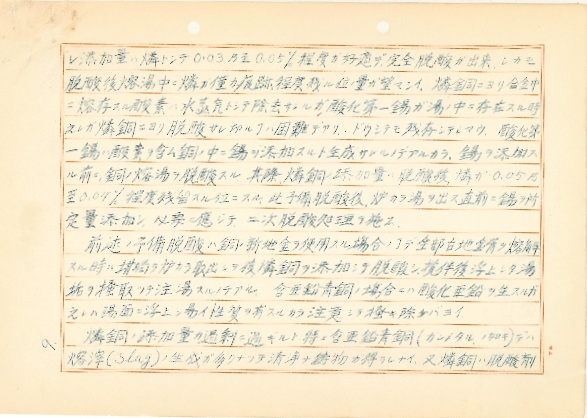 シ添加量ハ燐トシテ0.03乃至0.05%程度ガ好適デ完全脱酸ガ出来、シカモ
脱酸後熔湯中ニ燐ガ僅カ痕跡程度残ル位ノ量ガ望マシイ、燐銅ニヨリ合金中
ニ熔存スル酸素ハ水蒸気トシテ除去サレルガ酸化第一錫ガ湯ノ中ニ存在スル時
之レガ燐銅ニヨリ脱酸サレ即ルコトハ困難デアリ、ドウシテモ残存シテシマウ、酸化第
一錫ハ酸素ヲ含ム銅ノ中ニ錫ヲ添加スルト生成サレルノデアルカラ、錫ヲ添加ス
ル前ニ銅ノ熔湯ヲ脱酸スル、其際燐銅ノ添加量ハ脱酸後燐ガ0.05乃
至0.07%程度残留スル位ニスル、此予備脱酸後、炉カラ湯ヲ出ス直前ニ錫ヲ所
定量添加シ必要ニ應ジテ二次脱酸処理ヲ施ス、
前述ノ予備脱酸ハ銅ノ新地金ヲ使用スル場合ノコトデ全部古地金ヲ熔解
スル時ニ坩堝ヲ炉カラ取出シテ後燐銅ヲ添加シテ脱酸シ、攪拌後浮上シタ湯
垢ヲ搔取ツテ注湯スルノデアル、含亜鉛青銅ノ場合ニハ酸化亜鉛ヲ生スルガ
之レハ湯面ニ浮上シ易イ性質ヲ有スルカラ注意シテ搔キ除ケバヨイ
燐銅ノ添加量ガ過剰ニ過ギルト特ニ含亜鉛青銅(ガンメタル、)デハ
熔滓(Slag)ノ生成ガ多クナツテ清浄ナ鋳物ガ得ラレナイ、又燐銅ハ脱酸剤
9